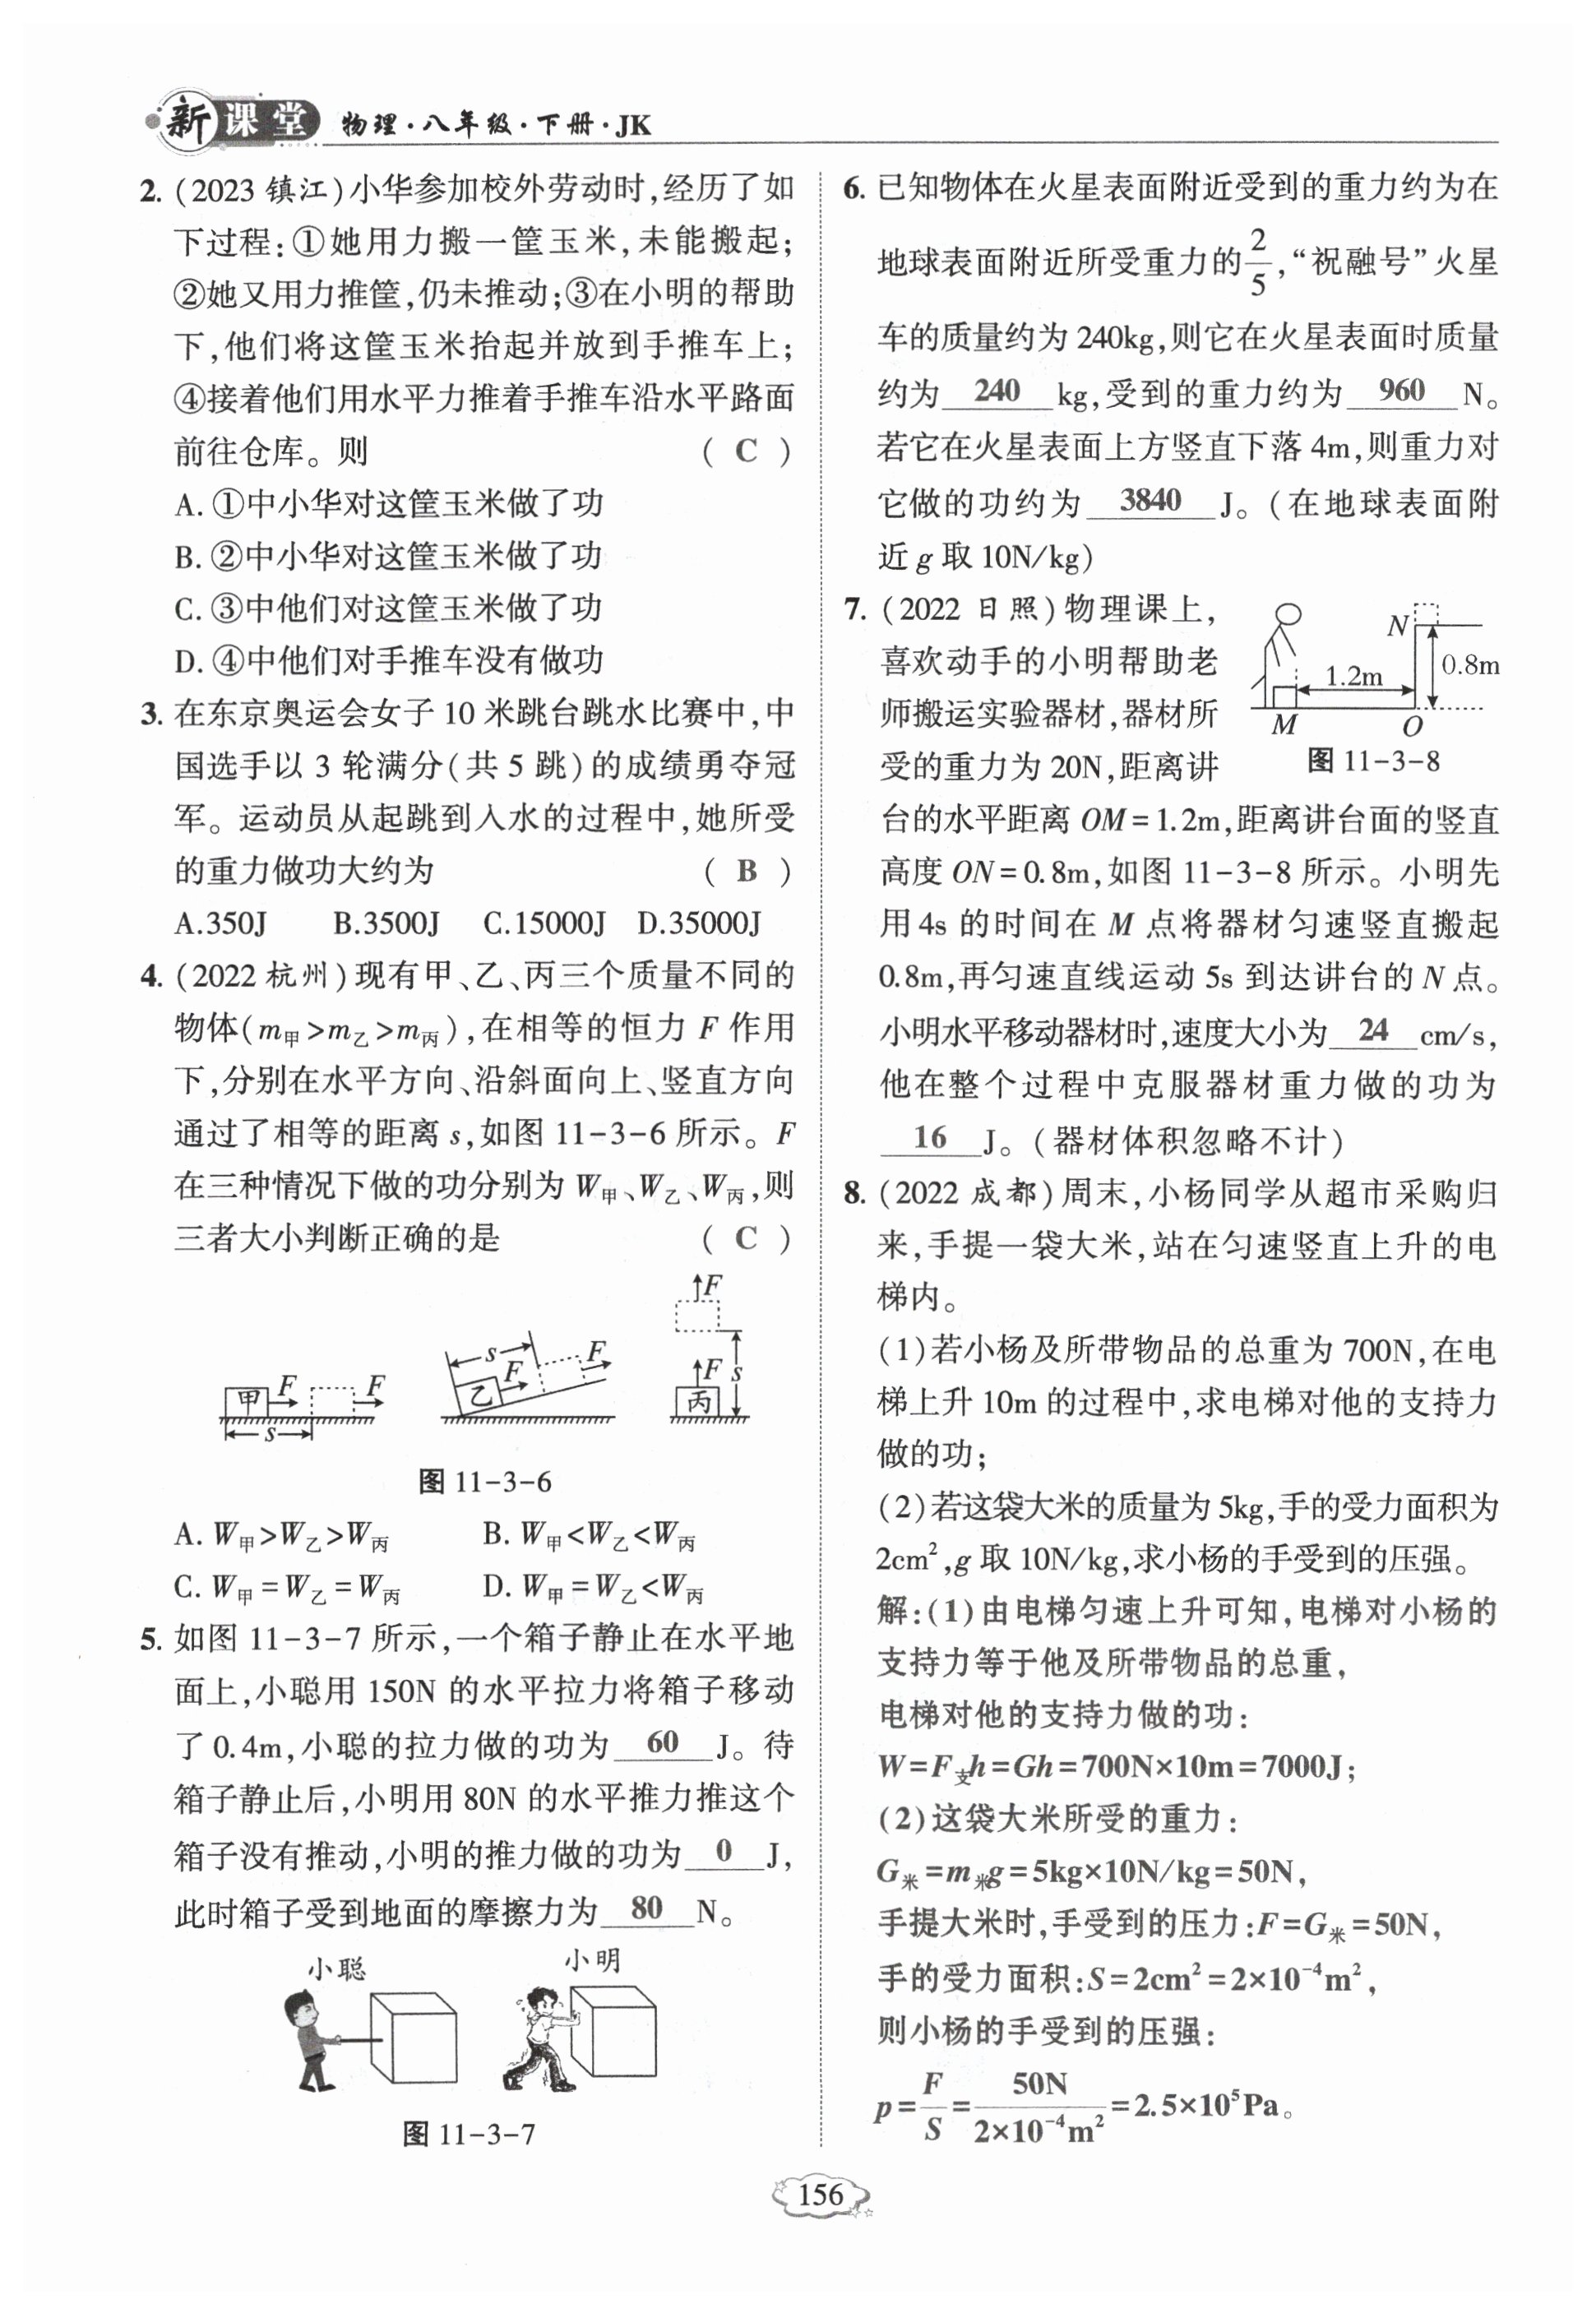 新课堂 物理·八年级·下册·JK
2. (2023 镇江)小华参加校外劳动时,经历了如
下过程:①她用力搬一筐玉米,未能搬起;
②她又用力推筐,仍未推动;③在小明的帮助
下,他们将这筐玉米抬起并放到手推车上;
④接着他们用水平力推着手推车沿水平路面
前往仓库。则 ( C )
A. ①中小华对这筐玉米做了功
B. ②中小华对这筐玉米做了功
C. ③中他们对这筐玉米做了功
D. ④中他们对手推车没有做功
3. 在东京奥运会女子 10 米跳台跳水比赛中,中
国选手以 3 轮满分(共 5 跳)的成绩勇夺冠
军。运动员从起跳到入水的过程中,她所受
的重力做功大约为 ( B )
A.350J B.3500J C.15000J D.35000J
4. (2022 杭州)现有甲、乙、丙三个质量不同的
物体(m甲>m乙>m丙),在相等的恒力 F 作用
下,分别在水平方向、沿斜面向上、竖直方向
通过了相等的距离 s,如图 11-3-6 所示。F
在三种情况下做的功分别为 W甲、W乙、W丙,则
三者大小判断正确的是 ( C )
甲 F F s
乙 F F s
丙 F F s
图 11-3-6
A. W甲>W乙>W丙 B. W甲<W乙<W丙
C. W甲=W乙=W丙 D. W甲=W乙<W丙
5. 如图 11-3-7 所示,一个箱子静止在水平地
面上,小聪用 150N 的水平拉力将箱子移动
了 0.4m,小聪的拉力做的功为 60 J。待
箱子静止后,小明用 80N 的水平推力推这个
箱子没有推动,小明的推力做的功为 0 J,
此时箱子受到地面的摩擦力为 80 N。
小聪 小明
图 11-3-7
6. 已知物体在火星表面附近受到的重力约为在
地球表面附近所受重力的2/5,“祝融号”火星
车的质量约为 240kg,则它在火星表面时质量
约为 240 kg,受到的重力约为 960 N。
若它在火星表面上方竖直下落 4m,则重力对
它做的功约为 3840 J。(在地球表面附
近 g 取 10N/kg)
7. (2022 日照)物理课上,
喜欢动手的小明帮助老
师搬运实验器材,器材所
受的重力为 20N,距离讲
N 0.8m 1.2m M O
图 11-3-8
台的水平距离 OM=1.2m,距离讲台面的竖直
高度 ON=0.8m,如图 11-3-8 所示。小明先
用 4s 的时间在 M 点将器材匀速竖直搬起
0.8m,再匀速直线运动 5s 到达讲台的 N 点。
小明水平移动器材时,速度大小为 24 cm/s,
他在整个过程中克服器材重力做的功为
16 J。(器材体积忽略不计)
8. (2022 成都)周末,小杨同学从超市采购归
来,手提一袋大米,站在匀速竖直上升的电
梯内。
(1)若小杨及所带物品的总重为 700N,在电
梯上升 10m 的过程中,求电梯对他的支持力
做的功;
(2)若这袋大米的质量为 5kg,手的受力面积为
2cm²,g 取 10N/kg,求小杨的手受到的压强。
解:(1)由电梯匀速上升可知,电梯对小杨的
支持力等于他及所带物品的总重,
电梯对他的支持力做的功:
W=F支h=Gh=700N×10m=7000J;
(2)这袋大米所受的重力:
G米=m米g=5kg×10N/kg=50N,
手提大米时,手受到的压力:F=G米=50N,
手的受力面积:S=2cm²=2×10⁻⁴m²,
则小杨的手受到的压强:
p=F/S=50N/2×10⁻⁴m²=2.5×10⁵Pa。
156